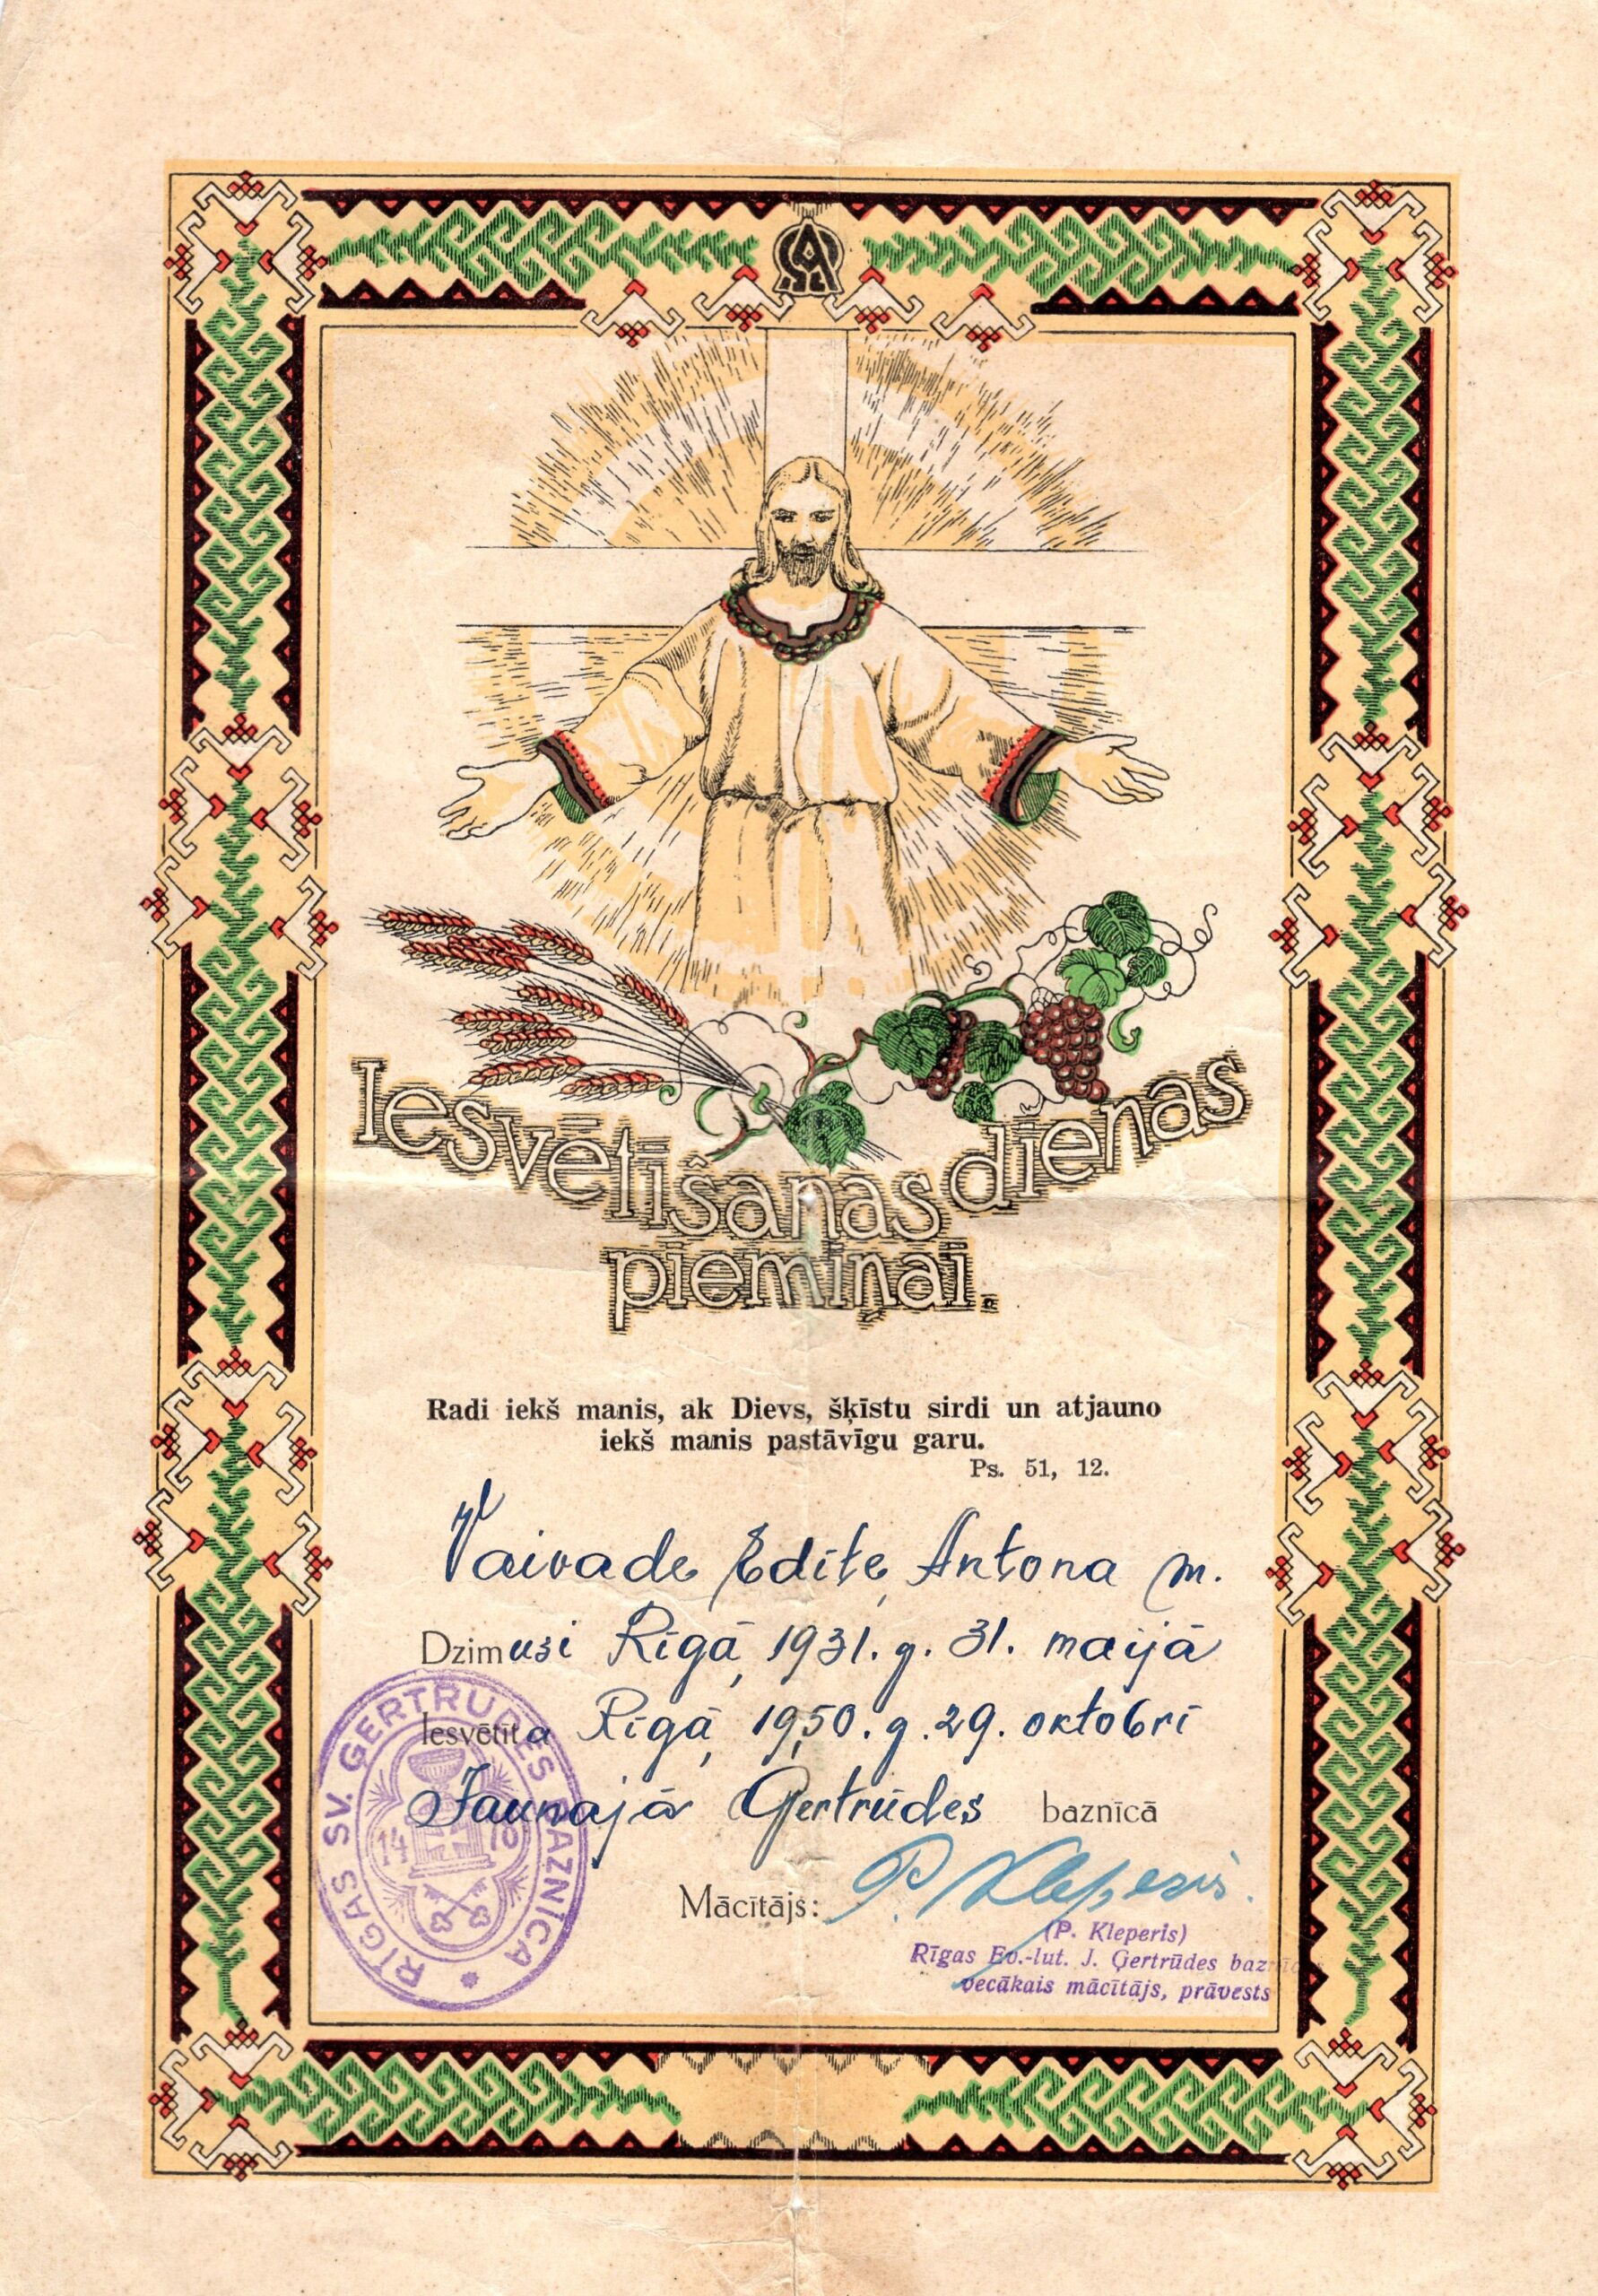 Iesvētīšanas dienas
piemiņai.
Radi iekš manis, ak Dievs, šķīstu sirdi un atjauno
iekš manis pastāvīgu garu.
Ps. 51, 12.
Vaivade Edīte, Antona m.
Dzimusi Rīgā, 1931. g. 31. maijā
Iesvētīta Rīgā, 1950. g. 29. oktobrī
Jaunajā Ģertrūdes baznīcā
Mācītājs: P. Kleperis.
(P. Kleperis)
Rīgas Ev.-lut. J. Ģertrūdes baznīcas
vecākais mācītājs, prāvests
RĪGAS SV. ĢERTRUDES BAZNĪCA